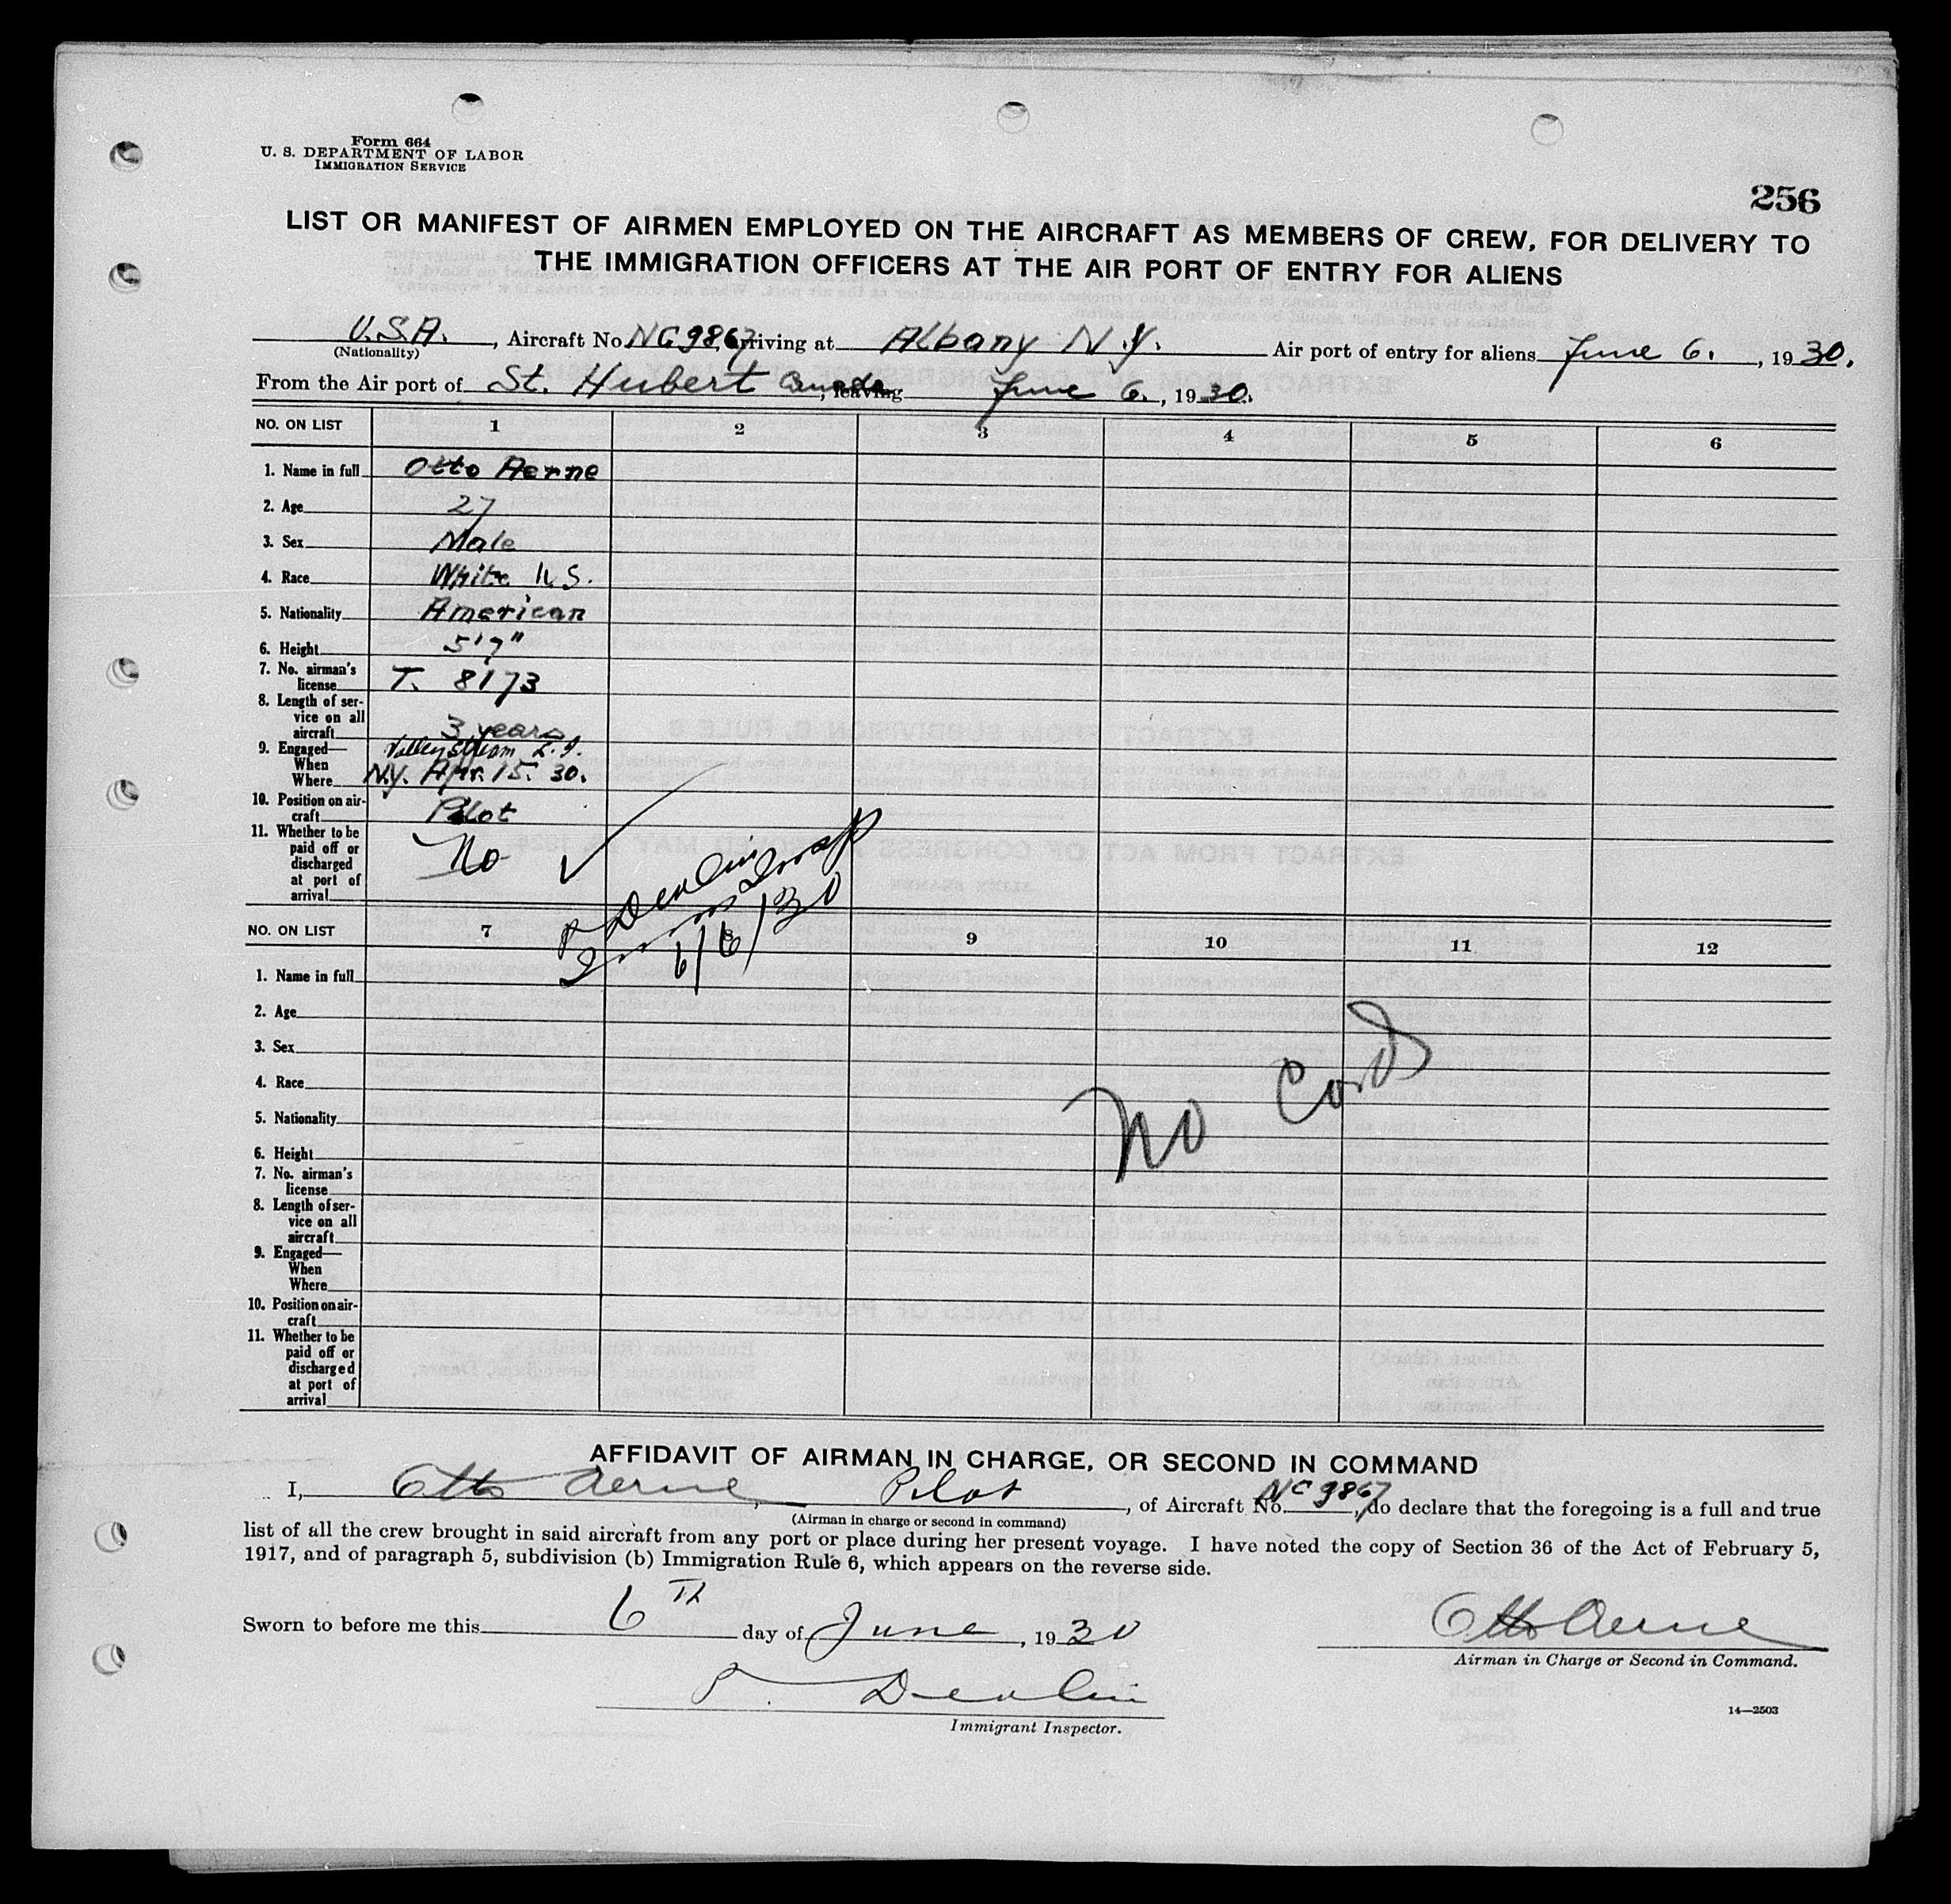 Form 664
U. S. DEPARTMENT OF LABOR
IMMIGRATION SERVICE
256
LIST OR MANIFEST OF AIRMEN EMPLOYED ON THE AIRCRAFT AS MEMBERS OF CREW, FOR DELIVERY TO
THE IMMIGRATION OFFICERS AT THE AIR PORT OF ENTRY FOR ALIENS
U.S.A. , Aircraft No. NC 9867, arriving at Albany N.Y. Air port of entry for aliens June 6. , 1930.
(Nationality)
From the Air port of St. Hubert Canada, leaving June 6. , 1930.
NO. ON LIST 1 2 3 4 5 6
1. Name in full Otto Aerne
2. Age 27
3. Sex Male
4. Race White U.S.
5. Nationality American
6. Height 5'7"
7. No. airman's
license T. 8173
8. Length of ser-
vice on all
aircraft 3 years
9. Engaged— Valley Stream L.I.
When
Where N.Y. Apr. 15. 30.
10. Position on air-
craft Pilot
11. Whether to be
paid off or No ✓
discharged
at port of
arrival
P Devlin
Immig Insp
6/6/30
NO. ON LIST 7 8 9 10 11 12
1. Name in full
2. Age
3. Sex
4. Race
5. Nationality
6. Height
7. No. airman's
license
8. Length of ser-
vice on all
aircraft
9. Engaged—
When
Where
10. Position on air-
craft
11. Whether to be
paid off or
discharged
at port of
arrival
No Card
AFFIDAVIT OF AIRMAN IN CHARGE, OR SECOND IN COMMAND
I, Otto Aerne, Pilot, of Aircraft No. NC 9867, do declare that the foregoing is a full and true
(Airman in charge or second in command)
list of all the crew brought in said aircraft from any port or place during her present voyage. I have noted the copy of Section 36 of the Act of February 5,
1917, and of paragraph 5, subdivision (b) Immigration Rule 6, which appears on the reverse side.
Sworn to before me this 6th day of June, 1930
Otto Aerne
Airman in Charge or Second in Command.
P. Devlin
Immigrant Inspector.
14—2503